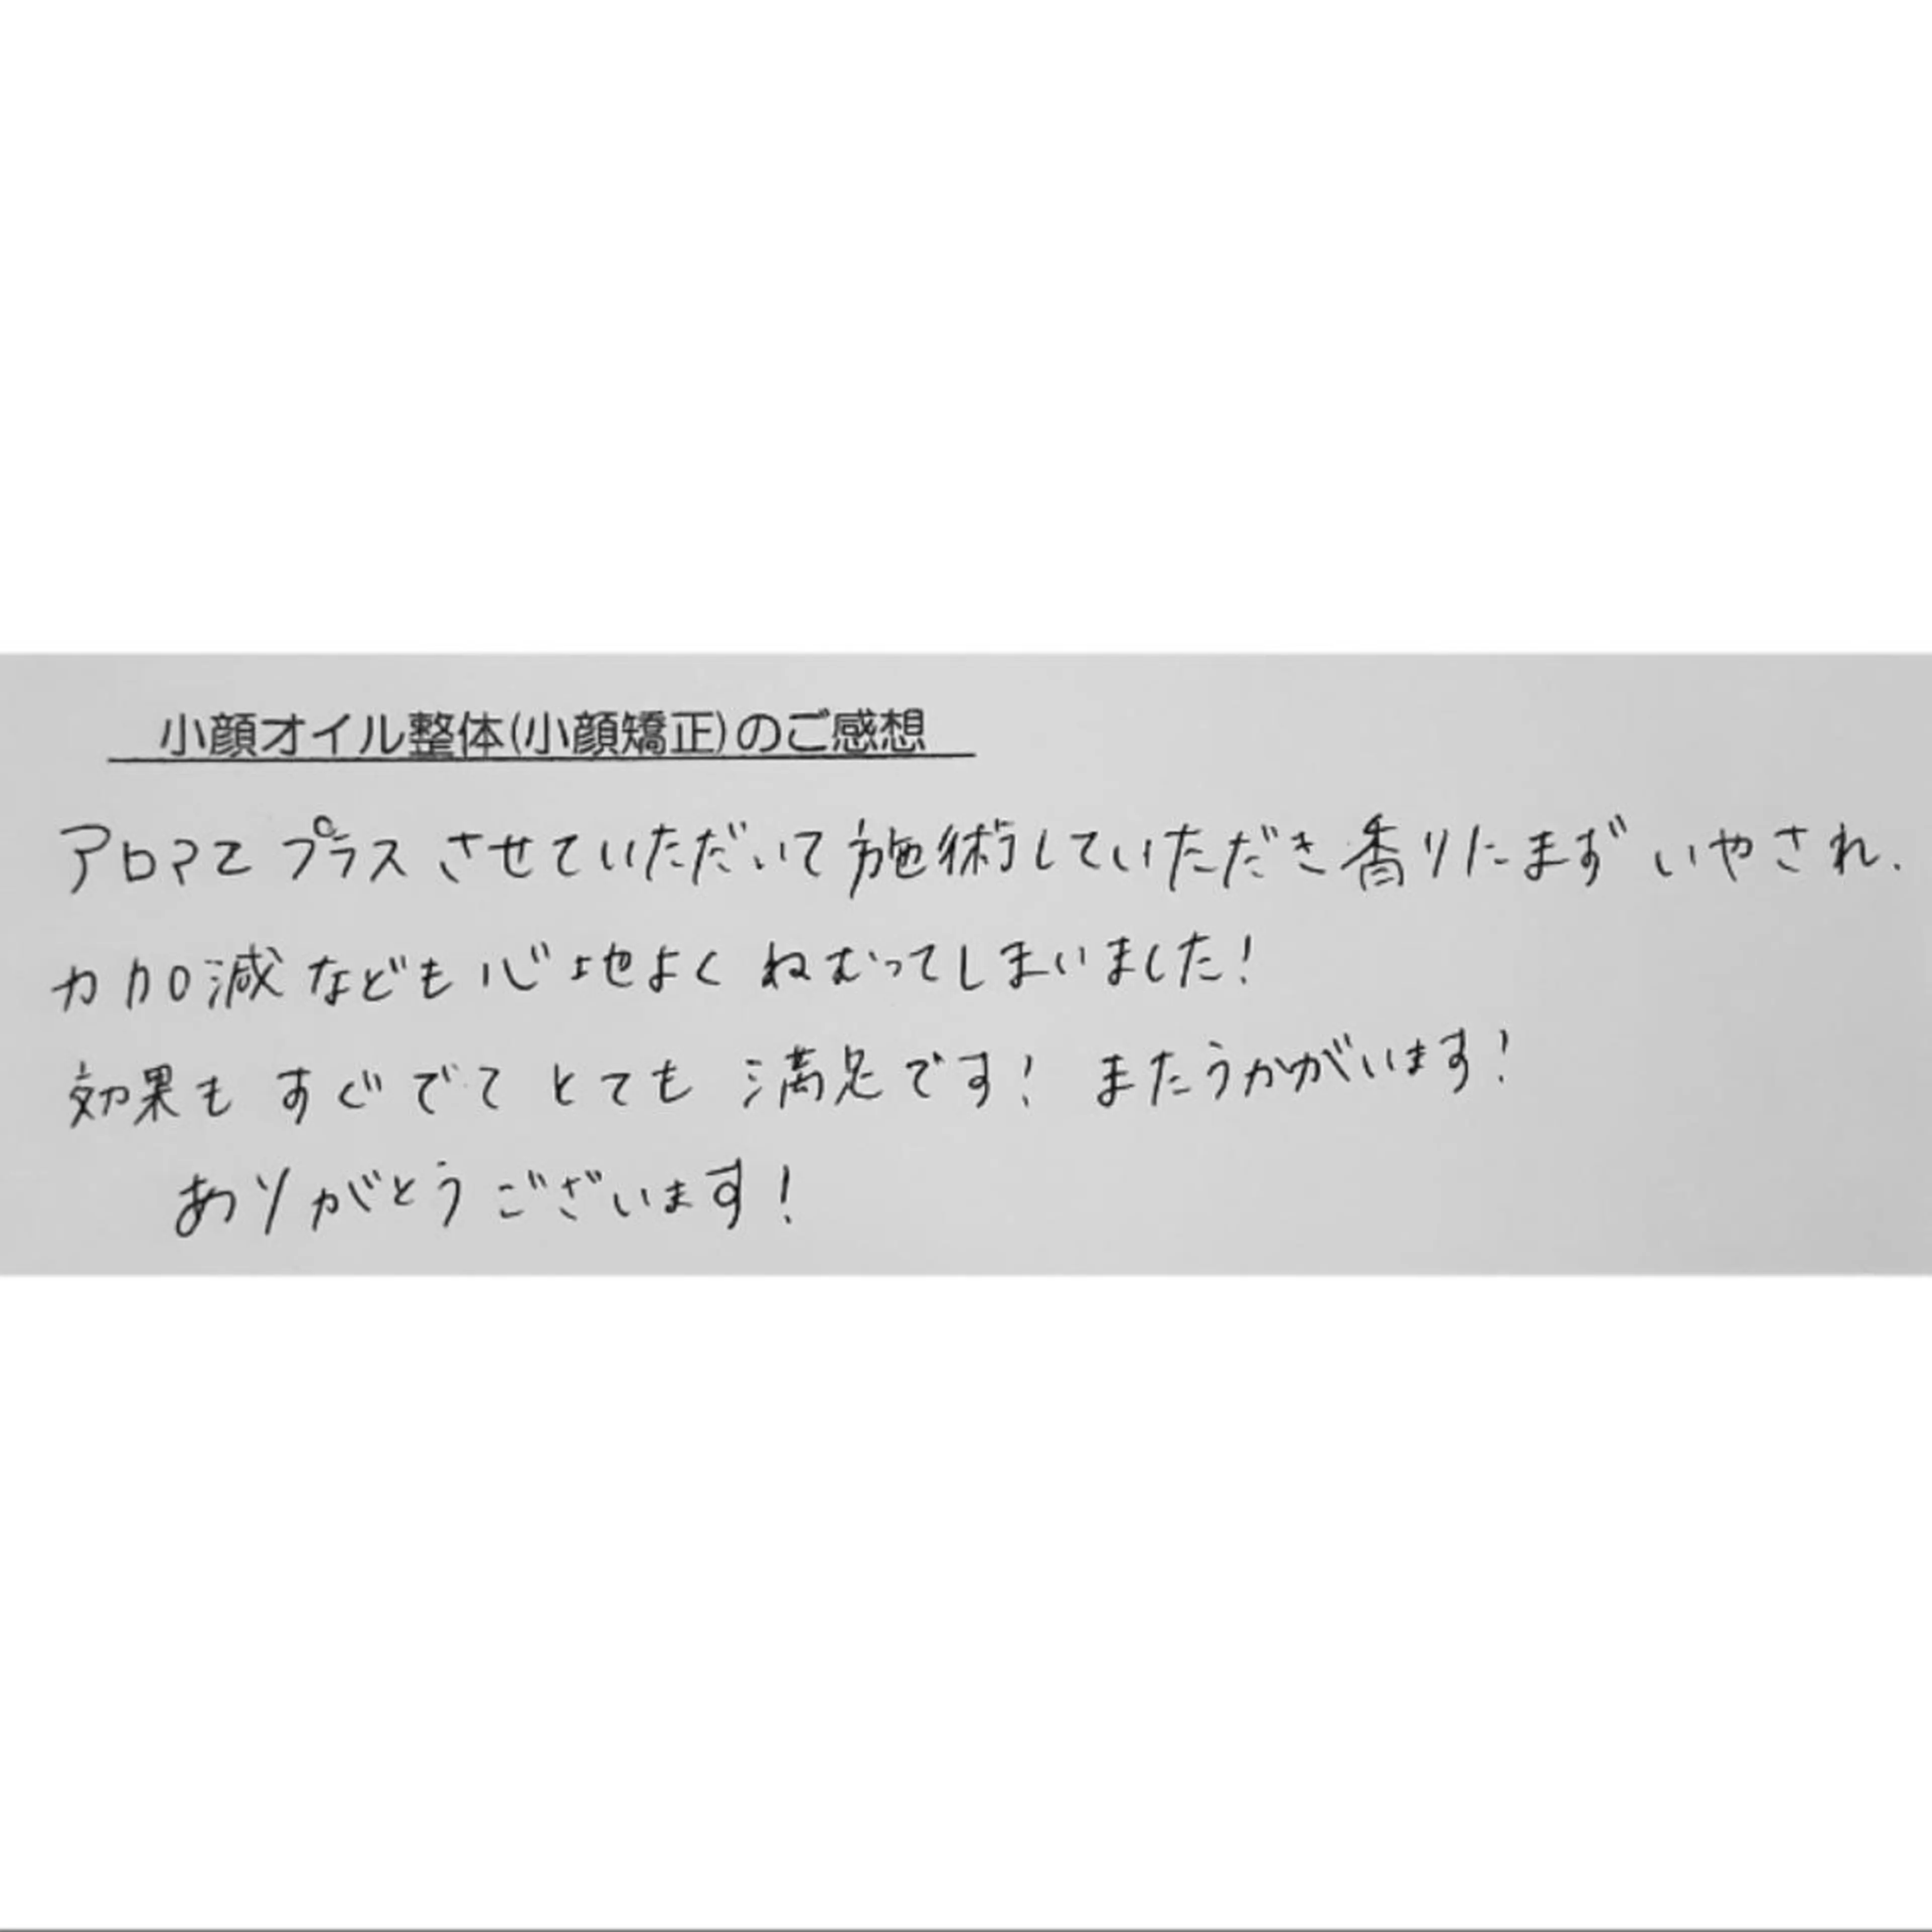 小顔オイル整体(小顔矯正)のご感想
アロマをプラスさせていただいて施術していただき香りにまずいやされ、
力加減なども心地よくねむってしまいました!
効果もすぐでてとても満足です!またうかがいます!
ありがとうございます!